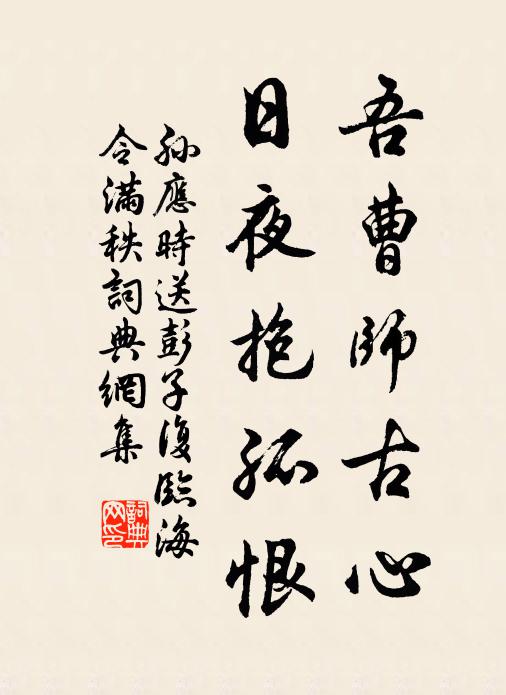 吾曹師古心
日夜抱孤恨
孫應時送彭子復臨海
令滿秩詞典網集
詞典网印